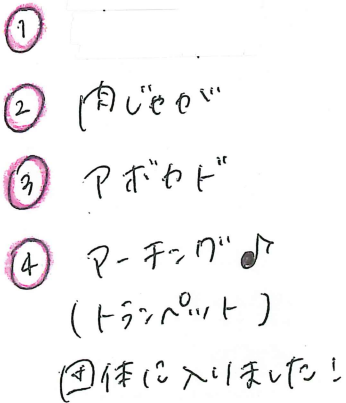 ①
② 肉じゃが
③ アボカド
④ マーチング♪
(トランペット)
団体に入りました!